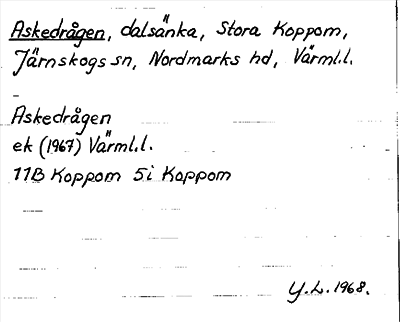 Askedrågen, dalsänka, Stora Koppom,
Järnskogs sn, Nordmarks hd, Värml.l.
–
Askedrågen
ek (1967) Värml.l.
11B Koppom 5i Koppom
Y.L. 1968.